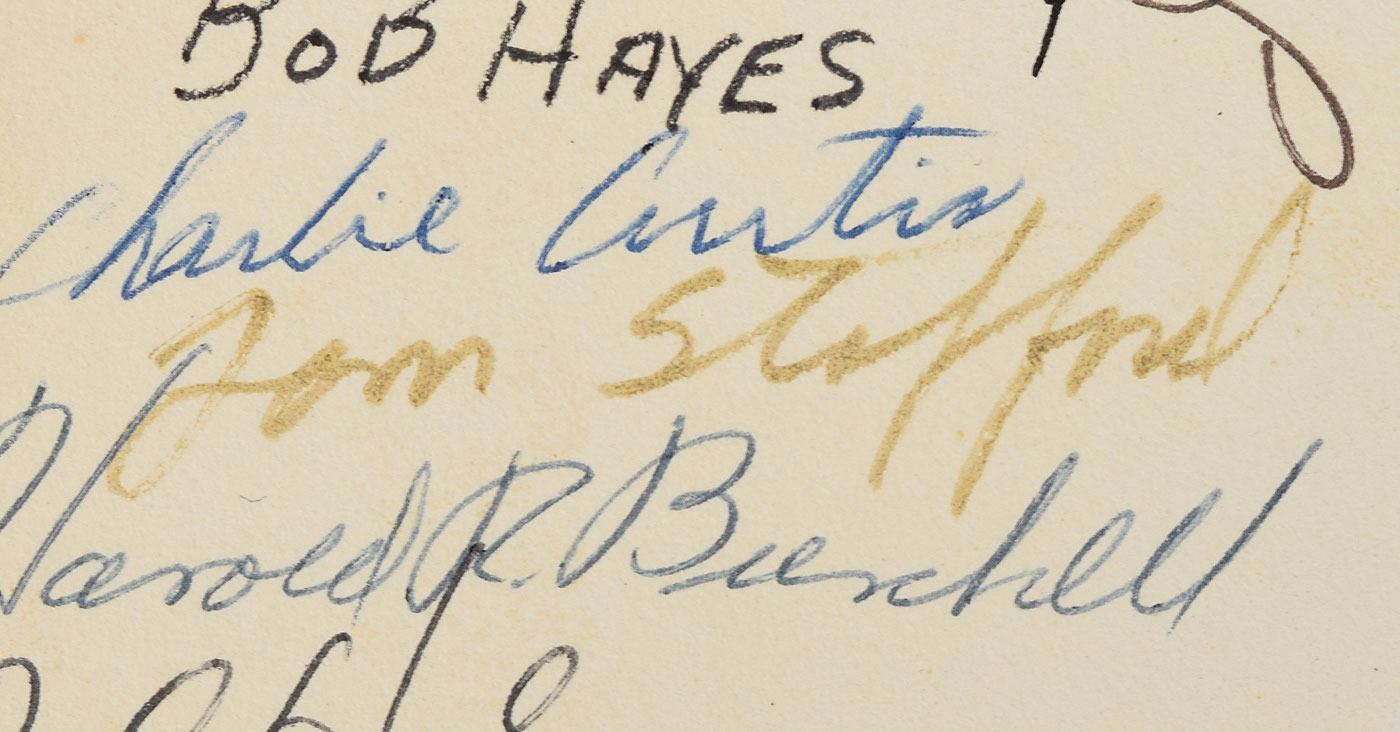 BOB HAYES
Charlie Curtis
Tom Stafford
Harold R. Burchell